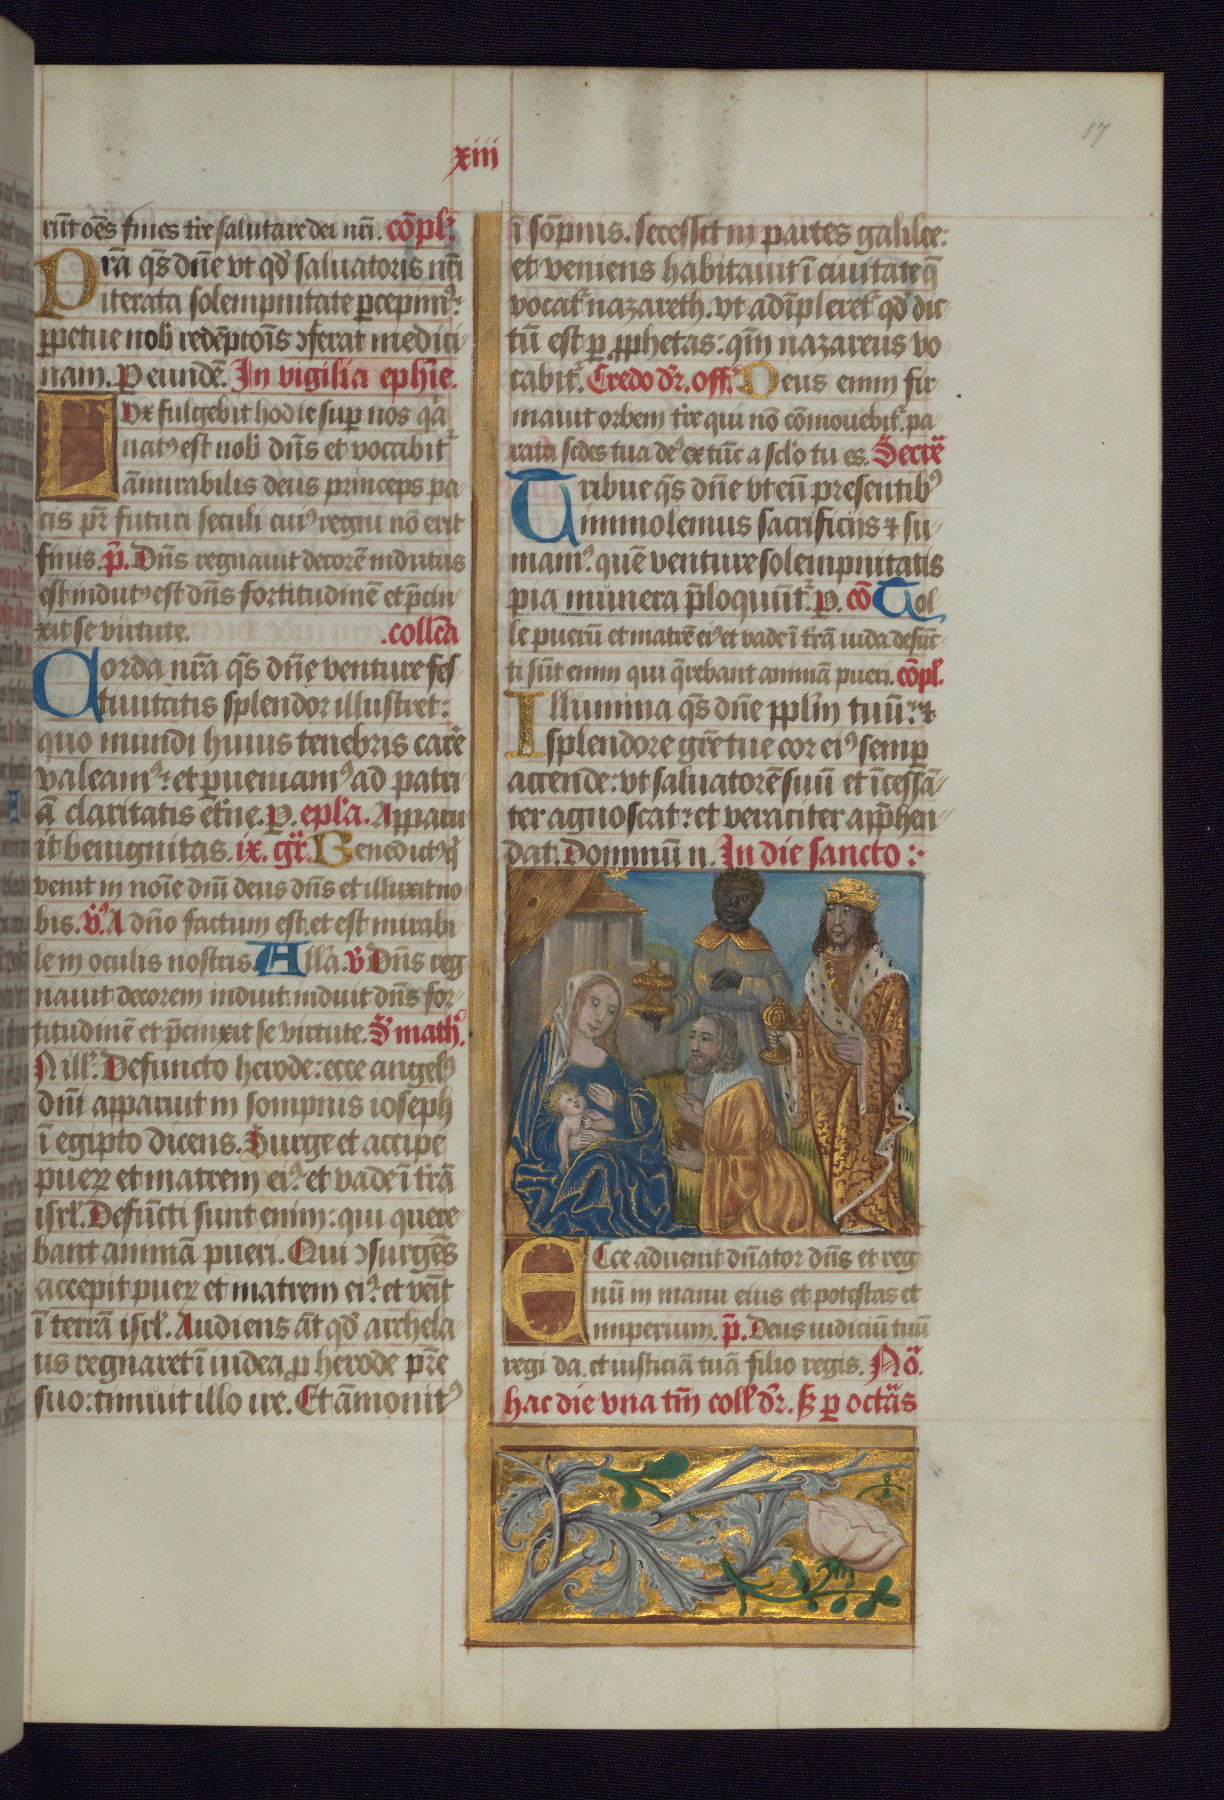 17
xiii
rūt oēs fines tr̄e salutare dei nr̄i. cōpl'.
Prā q̄s dn̄e vt qd̕ saluatoris nr̄i
iterata solempnitate ꝑcepim⁹:
ꝑpetue nob̕ redēptoīs ꝯferat medici-
nam. P eundē. In vigilia ephīe.
Lvx fulgebit hodie suꝑ nos q̄a
nat⁹ est nob̕ dn̄s et vocabit᷑
ām̄irabilis deus princeps pa-
cis pr̄ futuri seculi cui⁹ regni nō erit
finis. p̄. Dn̄s regnauit decorē indutus
est indut⁹ est dn̄s fortitudinē et p̄cin-
xit se virtute. .collc̄a
Corda nr̄a q̄s dn̄e venture fes-
tiuitatis splendor illustret:
quo mundi huius tenebris carē
valeam⁹: et ꝑueniam⁹ ad patri-
ā claritatis et̄ne. P. epl̄a. Apparu-
it benignitas. ix. gr̄. Benedict⁹ q̄
venit in noīe dn̄i deus dn̄s et illuxit no-
bis. v̄⁹. A dn̄o factum est. et est mirabi-
le in oculis nostris. All̄a. v̄ Dn̄s reg-
nauit decorem induit induit dn̄s for-
titudinē et p̄cinxit se virtute. S̄ math̕.
Nill̕. Defuncto herode: ecce angel⁹
dn̄i apparuit in sompnis ioseph
ī egipto dicens. Surge et accipe
pueꝝ et matrem ei⁹: et vade ī trā
isrl̕. Defūcti sunt enim: qui quere-
bant animā pueri. Qui ꝯsurgēs
accepit pueꝝ et matrem ei⁹: et venīt
ī terrā isrl̕. Audiens āt qd̕ archela-
us regnaret ī iudea ꝓ herode pr̄e
suo: timuit illo ire. Et ām̄onit⁹
ī sōpnis. secessit in partes galilee:
et veniens habitauit ī ciuitate q̄
vocat᷑ nazareth. vt adīpleret᷑ qd̕ dic-
tū est ꝑ ꝓphetas: qm̄ nazareus vo-
cabit᷑. Credo dr̄. off. Deus enim fir-
mauit orbem tr̄e qui nō cōmouebit᷑. pa-
rata sedes tua de⁹ ex tūc a scl̄o tu es. Secrē
Tribue q̄s dn̄e vt cū presentib⁹
immolemus sacrificijs ⁊ su-
mam⁹. quē venture solempnitatis
pia munera p̄loquūt᷑. P. cō Tol-
le puerū et matrē ei⁹ et vade ī trā iuda defūc-
ti sūt enim qui q̄rebant animā pueri. cōpl'.
Illumina q̄s dn̄e ppl̄m tuū: ⁊
splendore gr̄e tue cor ei⁹ semꝑ
accende: vt saluatorē suū et īcessā-
ter agnoscat: et veraciter app̄hen-
dat. Dominū n. In die sancto:
Ecce aduenit dn̄ator dn̄s et reg-
nū in manu eius et potestas et
imperium. p̄. Deus iudiciū tuū
regi da. et iusticiā tuā filio regis. Nō.
hac die vna tm̄ coll̕ dr̄. s; ꝑ octās